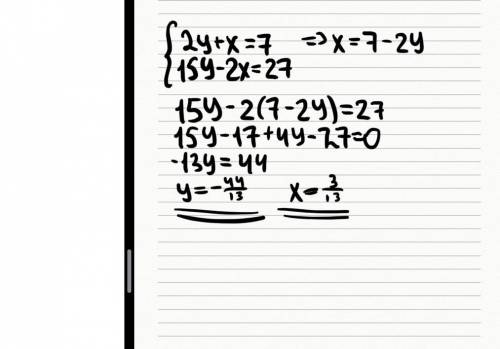 {2y+x=7 => x=7-2y
15y-2x=27
15y-2(7-2y)=27
15y-17+4y-27=0
-13y=44
y=-44/13 x=3/13